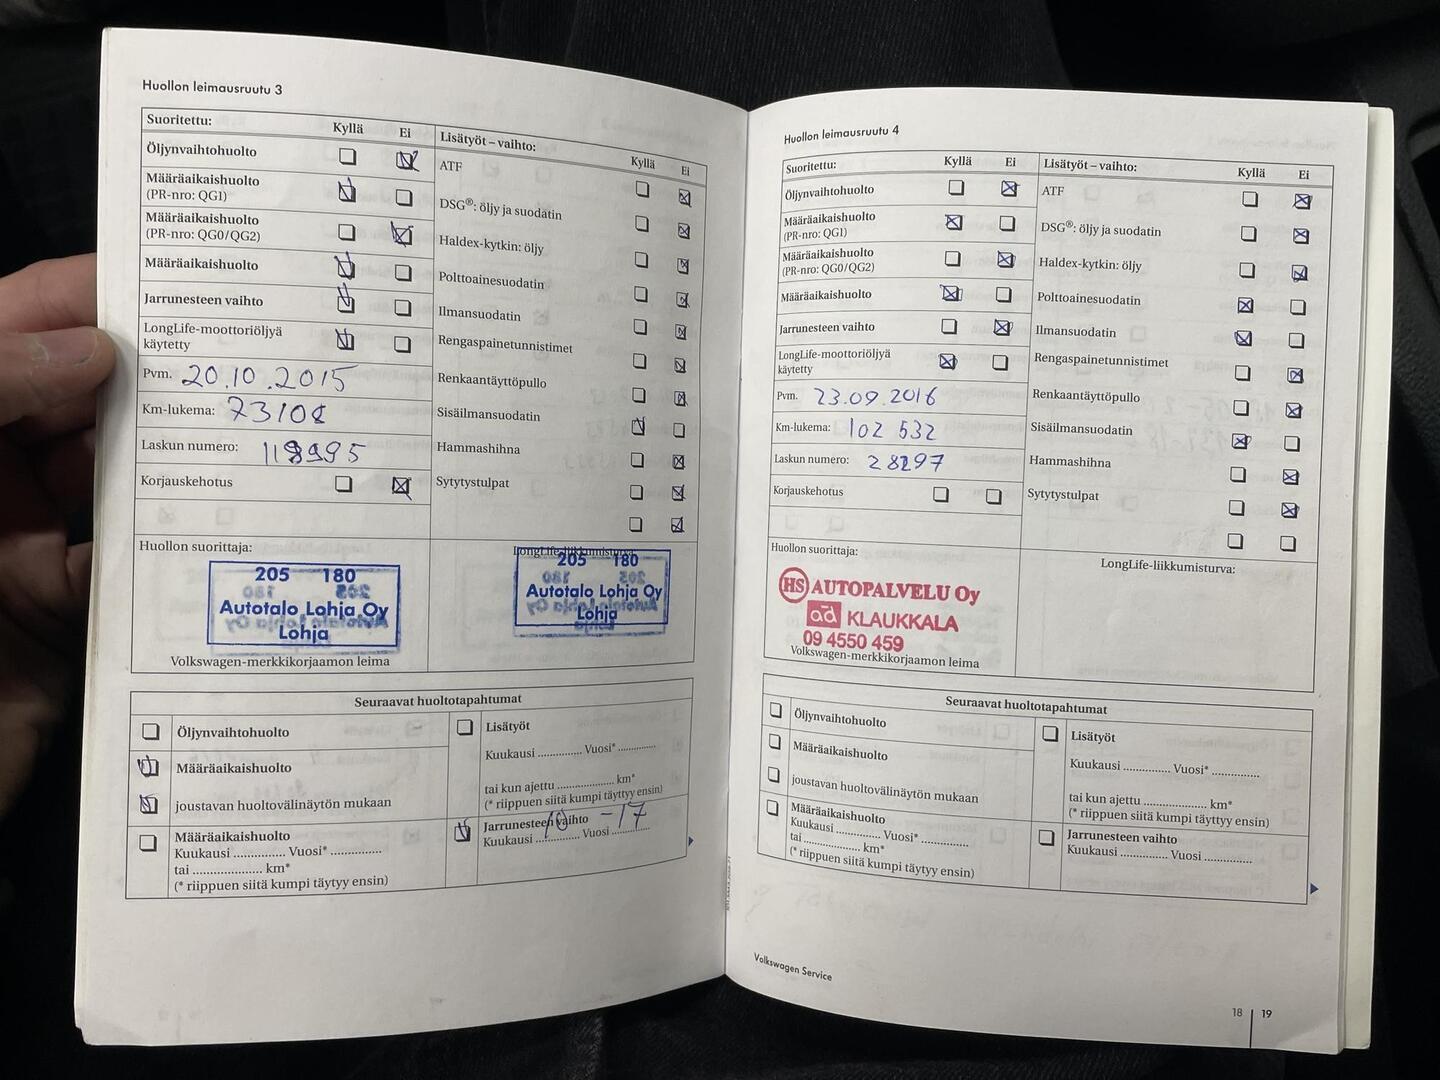 Huollon leimausruutu 3
Suoritettu: Kyllä Ei
Öljynvaihtohuolto
Määräaikaishuolto
(PR-nro: QG1)
Määräaikaishuolto
(PR-nro: QG0/QG2)
Määräaikaishuolto
Jarrunesteen vaihto
LongLife-moottoriöljyä
käytetty
Pvm. 20.10.2015
Km-lukema: 73108
Laskun numero:
Korjauskehotus
Lisätyöt – vaihto: Kyllä Ei
ATF
DSG®: öljy ja suodatin
Haldex-kytkin: öljy
Polttoainesuodatin
Ilmansuodatin
Rengaspainetunnistimet
Renkaantäyttöpullo
Sisäilmansuodatin
Hammashihna
Sytytystulpat
Huollon suorittaja:
205 180
Autotalo Lohja Oy
Lohja
Volkswagen-merkkikorjaamon leima
LongLife-liikkumisturva:
205 180
Autotalo Lohja Oy
Lohja
Seuraavat huoltotapahtumat
Öljynvaihtohuolto
Määräaikaishuolto
joustavan huoltovälinäytön mukaan
Määräaikaishuolto
Kuukausi ............... Vuosi* ...............
tai .................... km*
(* riippuen siitä kumpi täytyy ensin)
Lisätyöt
Kuukausi ............. Vuosi* .............
tai kun ajettu ................. km*
(* riippuen siitä kumpi täytyy ensin)
Jarrunesteen vaihto
Kuukausi ............. Vuosi ............. 10 -17
Huollon leimausruutu 4
Suoritettu: Kyllä Ei
Öljynvaihtohuolto
Määräaikaishuolto
(PR-nro: QG1)
Määräaikaishuolto
(PR-nro: QG0/QG2)
Määräaikaishuolto
Jarrunesteen vaihto
LongLife-moottoriöljyä
käytetty
Pvm. 23.09.2016
Km-lukema: 102 532
Laskun numero: 28297
Korjauskehotus
Lisätyöt – vaihto: Kyllä Ei
ATF
DSG®: öljy ja suodatin
Haldex-kytkin: öljy
Polttoainesuodatin
Ilmansuodatin
Rengaspainetunnistimet
Renkaantäyttöpullo
Sisäilmansuodatin
Hammashihna
Sytytystulpat
Huollon suorittaja:
HS AUTOPALVELU Oy
ad KLAUKKALA
09 4550 459
Volkswagen-merkkikorjaamon leima
LongLife-liikkumisturva:
Seuraavat huoltotapahtumat
Öljynvaihtohuolto
Määräaikaishuolto
joustavan huoltovälinäytön mukaan
Määräaikaishuolto
Kuukausi ............. Vuosi* .............
tai ................... km*
(* riippuen siitä kumpi täytyy ensin)
Lisätyöt
Kuukausi ............. Vuosi* .............
tai kun ajettu ................. km*
(* riippuen siitä kumpi täytyy ensin)
Jarrunesteen vaihto
Kuukausi ............. Vuosi .............
Volkswagen Service
18 19